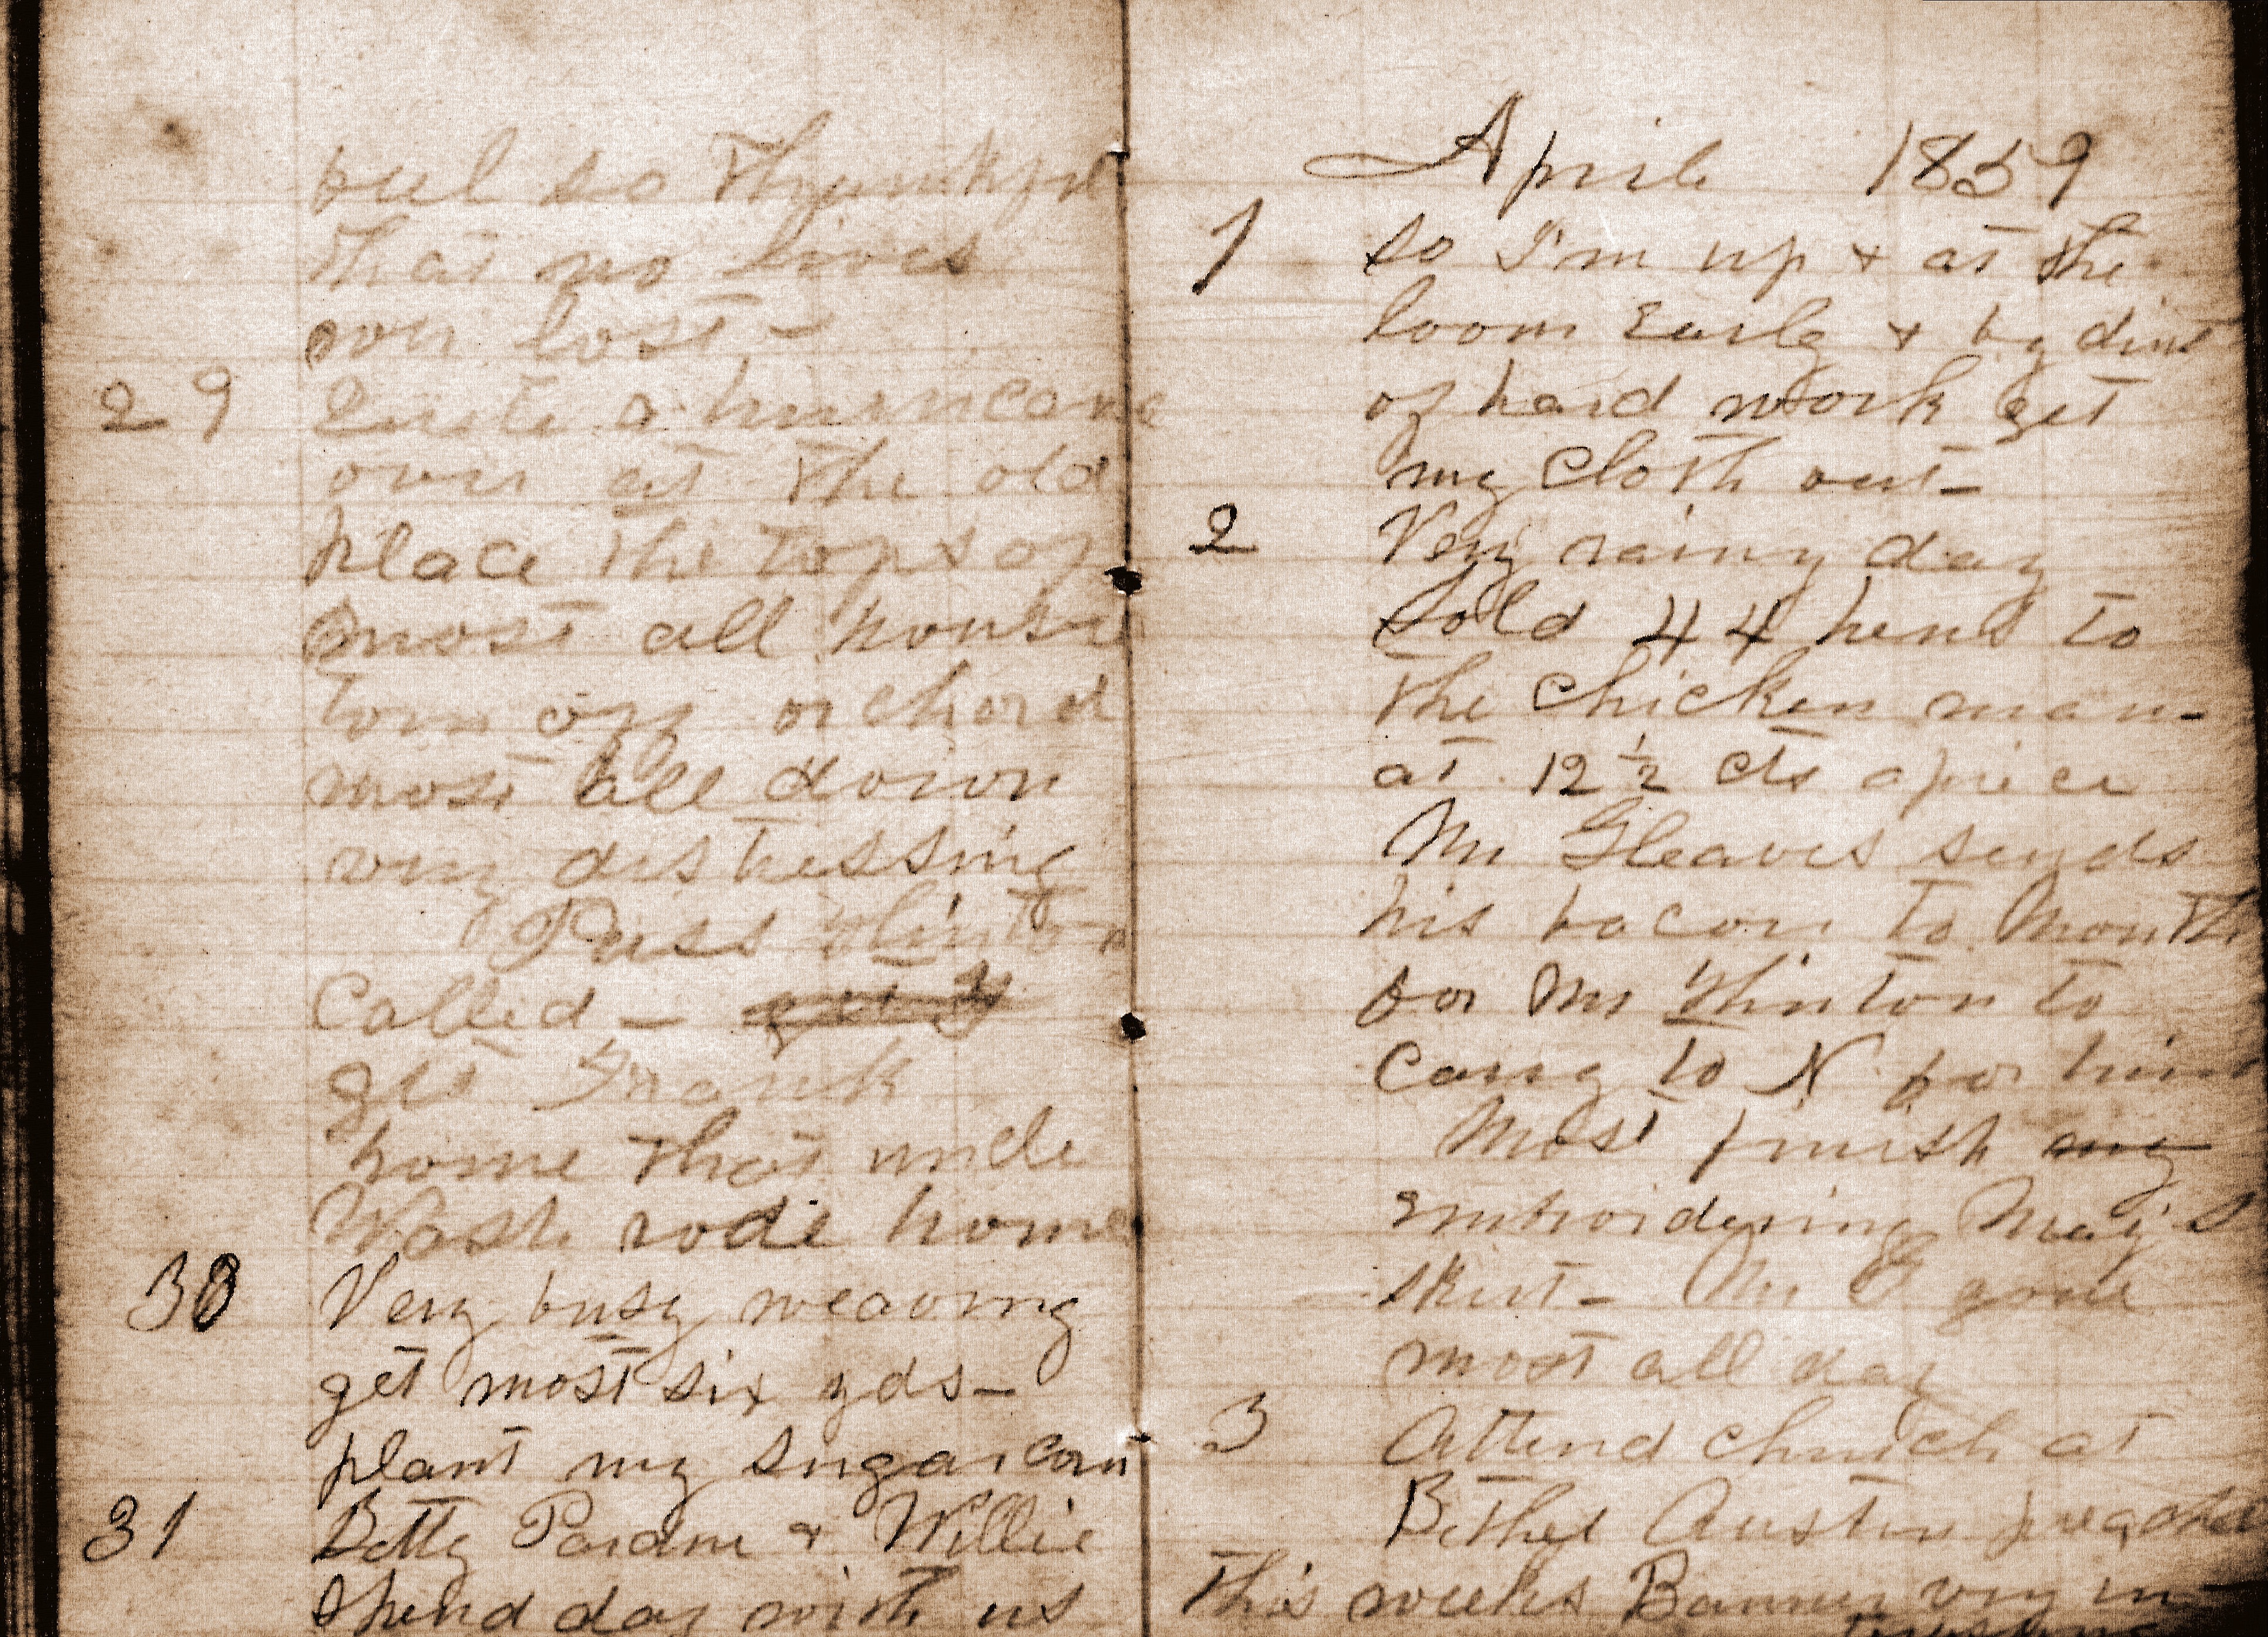 feel so thankful
that no lives
were lost -
29 Quite a hurricane
over at the old
place the tops of
most all houses
torn off orchard
most all down
very distressing
Puss Hinton
Called -
get Frank
home that uncle
Wash rode home
30 Very busy weaving
get most six yds -
plant my sugar corn
31 Betty Pardue & Willie
spend day with us
April 1859
1 So I'm up & at the
loom Early & by dint
of hard work get
my Cloth out -
2 Very rainy day
Sold 44 hens to
the Chicken man -
at 12 ½ cts apiece
Mr Gleaves sends
his bacon to Mouth
for Mr Hinton to
Carry to N for him
Most finish my
embroidering May's
skirt - Mr G gone
most all day
3 Attend church at
Bethel Austin preached
This weeks Banner very in-